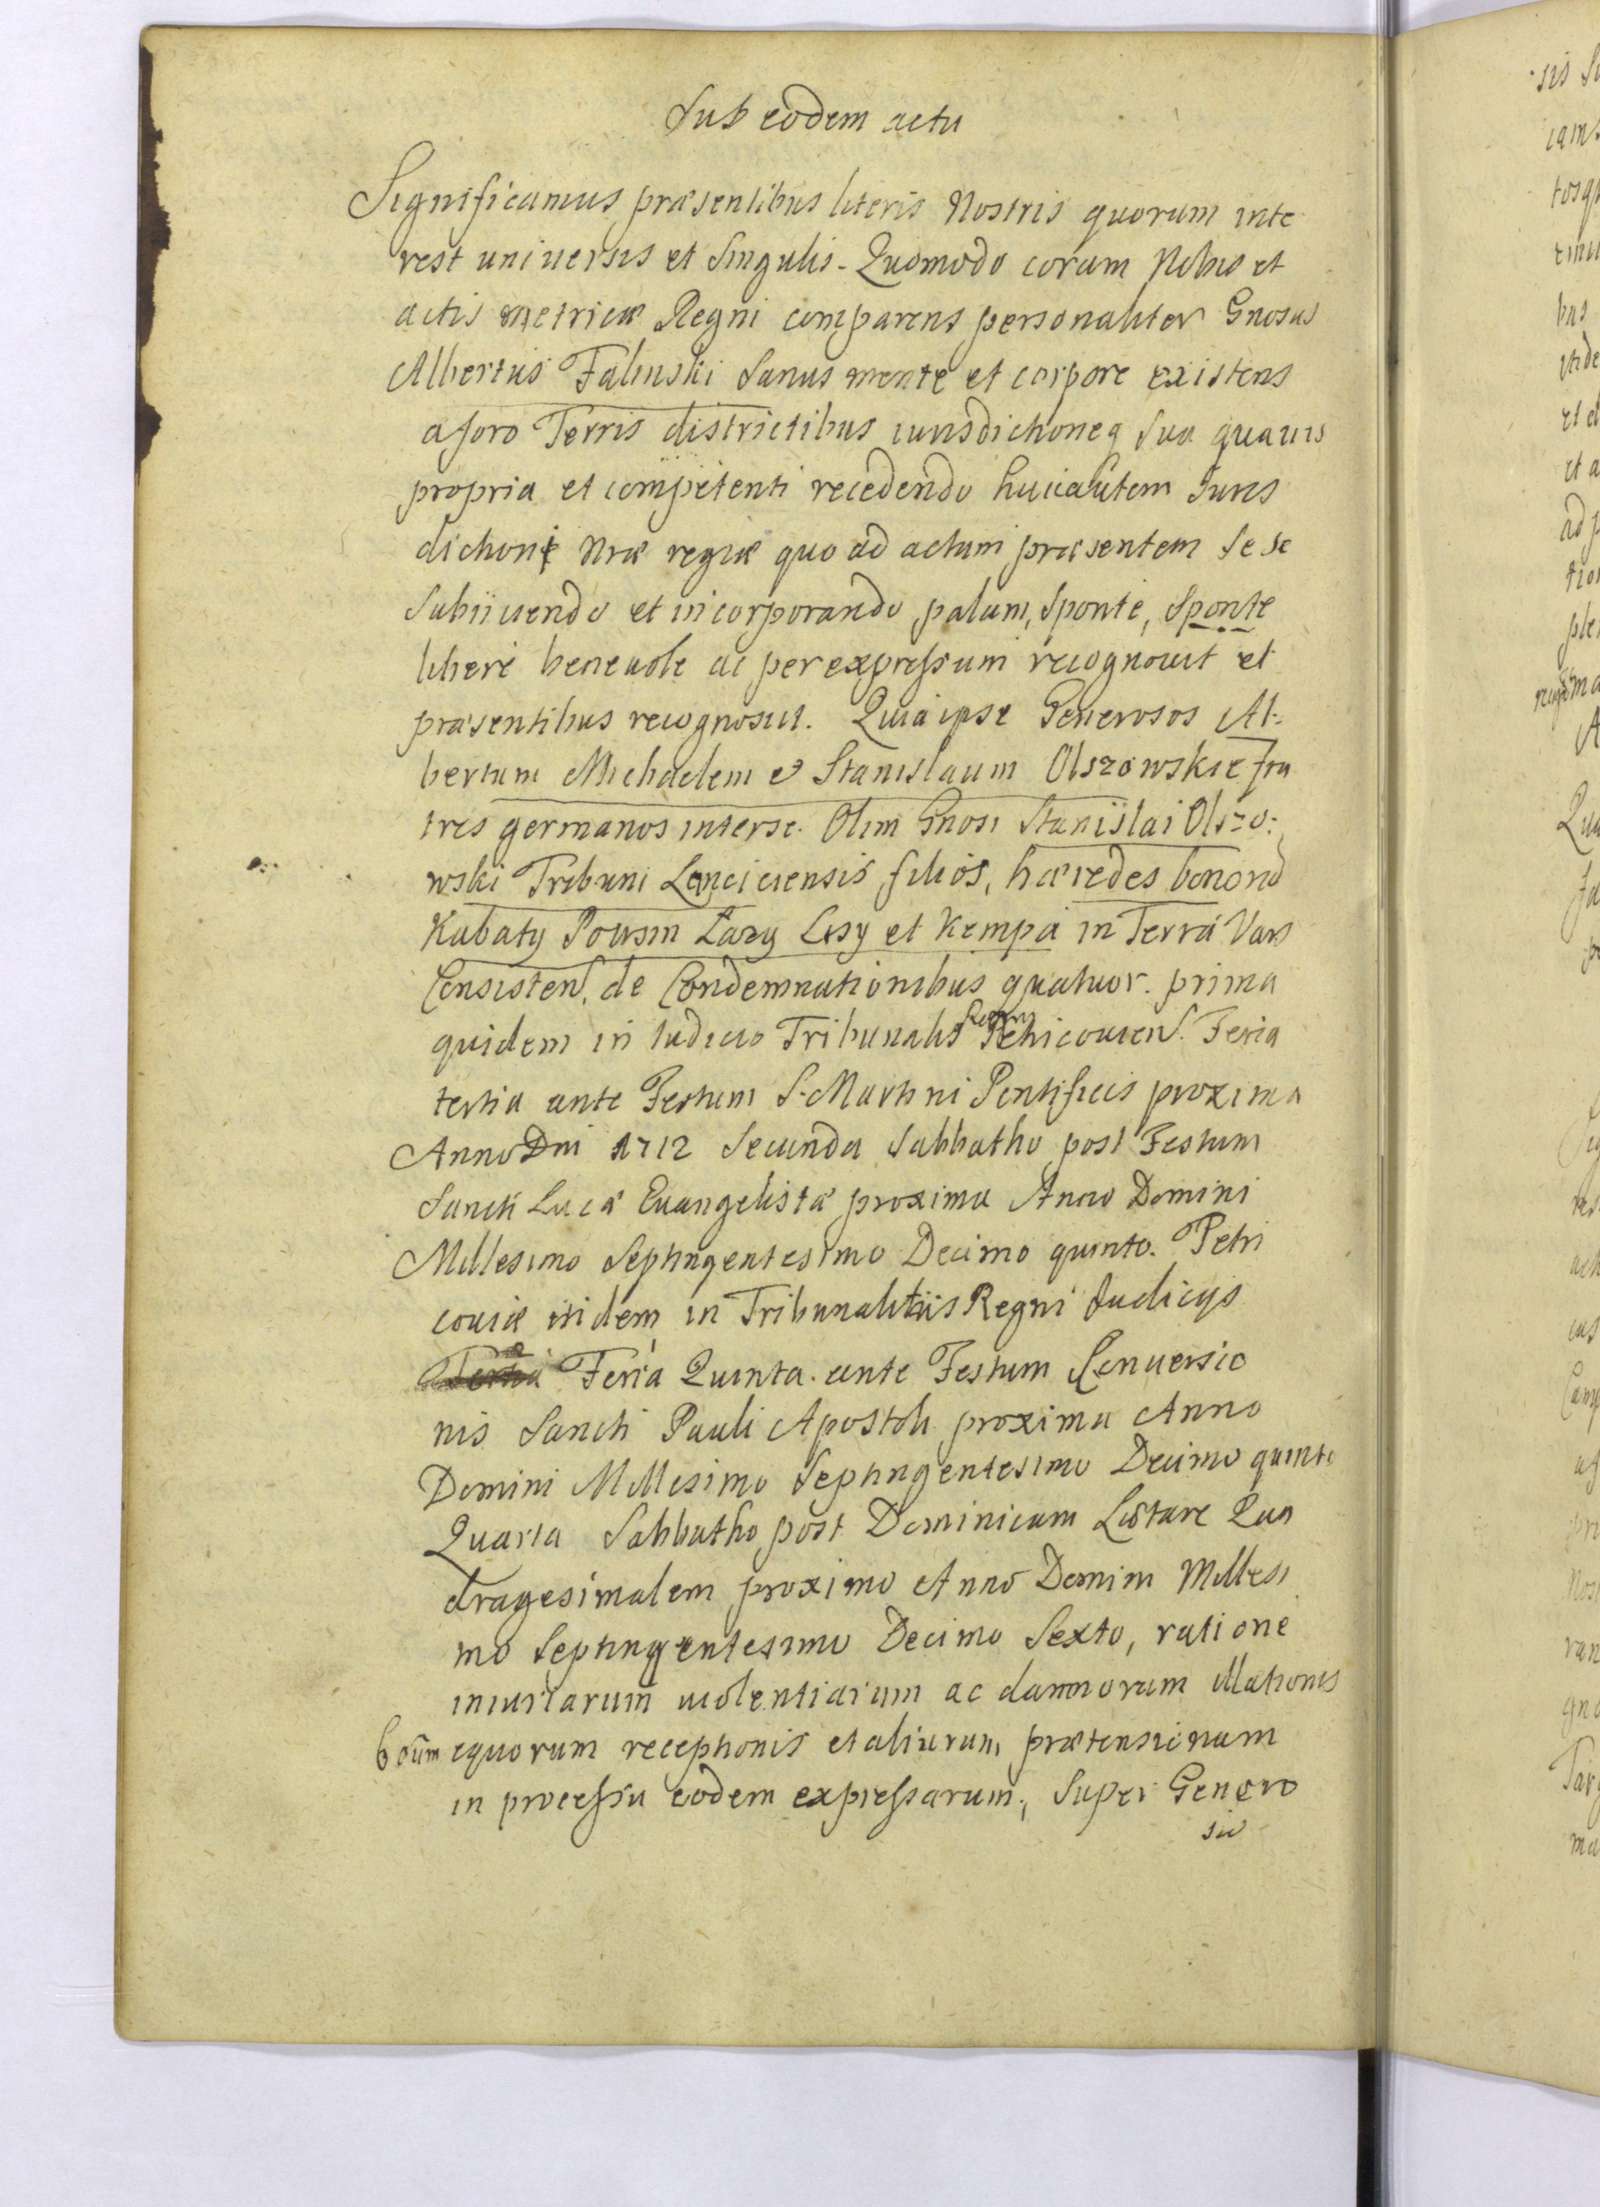 Sub eodem actu
Significamus præsentibus literis Nostris quorum inte
rest universis et Singulis. Quomodo coram Nobis et
actis metricæ Regni comparens personaliter Gnosus
Albertus Falinski Sanus mente et corpore existens
a foro Terris districtibus iurisdictioneq sua quavis
propria et competenti recedendo huicautem Juris
dictioni Nræ regiæ quo ad actum præsentem Se se
Subiiciendo et incorporando palam, Sponte, Sponte
libere benevole ac per expressum recognovit et
præsentibus recognoscit. Quia ipse Generosos Al:
bertum Michaelem et Stanislaum Olszowskie fra
tres germanos inter se. Olim Gnosi Stanislai Olszo:
wski Tribuni Lanciciensis filios, hæredes bonorū
Kubaty Powsin Lazy Lisy et Kempa in Terra Vars
Consisten. de Condemnationibus quatuor. prima
quidem in Iudicio Tribunalis Regni Petricovien. Feria
tertia ante Festum S. Martini Pontificis proxima
Anno Dni 1712 Secunda Sabbatho post Festum
Sancti Lucæ Evangelistæ proximu Anno Domini
Millesimo Septingentesimo Decimo quinto. Petri
coviæ itidem in Tribunalitiis Regni Judicijs
Tertia Feria Quinta. ante Festum Conversio
nis Sancti Pauli Apostoli proxima Anno
Domini Millesimo Septingentesimo Decimo quinto
Quarta Sabbatho post Dominicam Lætare Qua
dragesimalem proximo Anno Domini Millesi
mo Septingentesimo Decimo Sexto, ratione
iniuriarum violentiarum ac damnorum illationis
boūm equorum receptionis et aliarum prætensionum
in processu eodem expressarum, Super Genero
sis